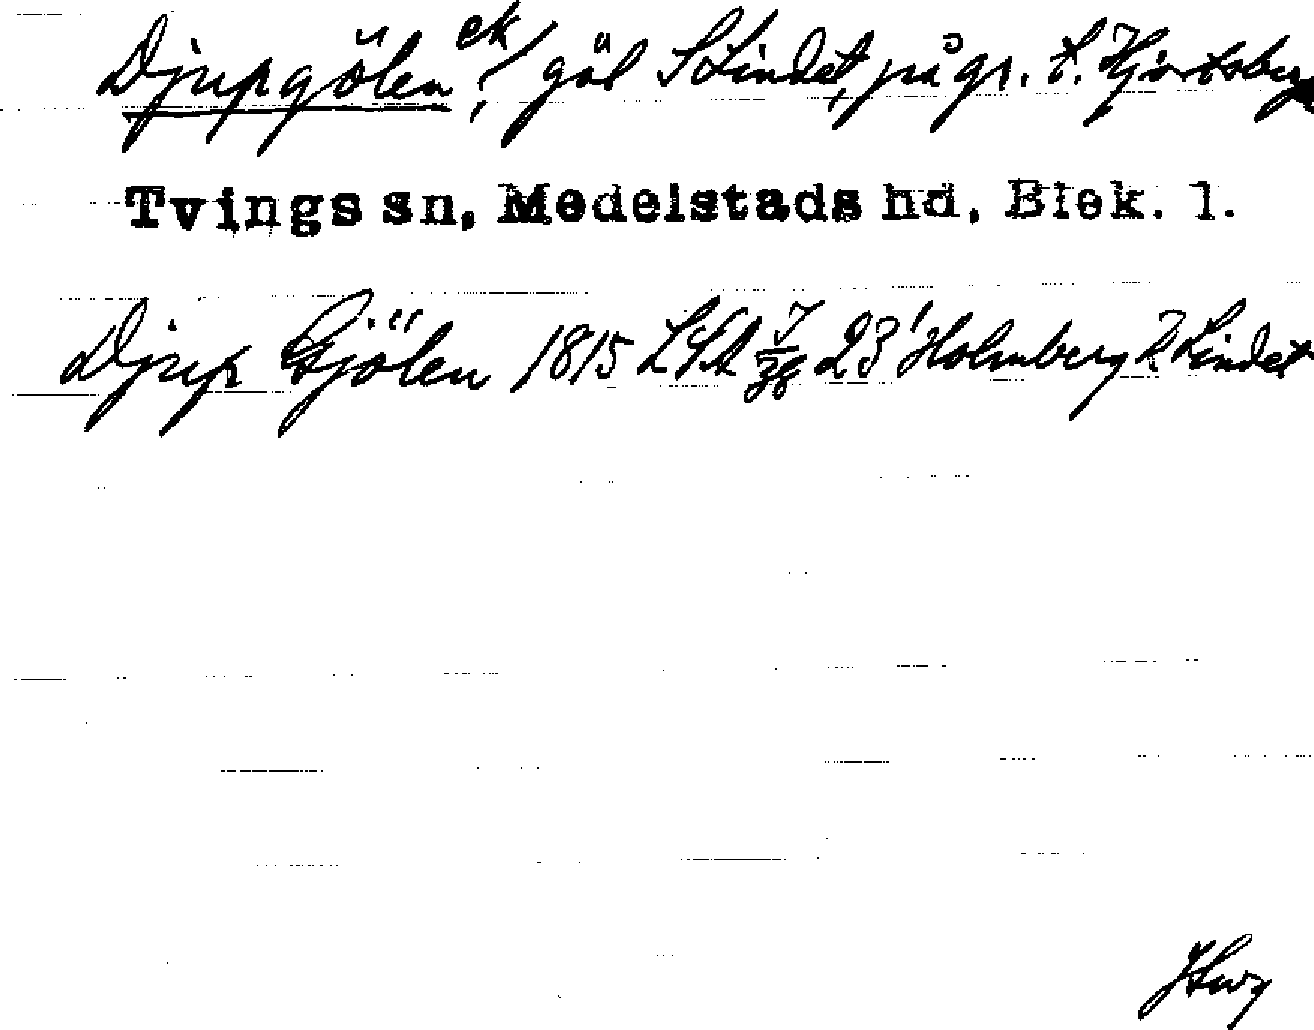 Djupgölen, ek/ göl S Lindet, på gr. t. Hjortsberg
Tvings sn, Medelstads hd, Blek. l.
Djup Gjölen 1815 LSA 23 Holmberg Lindet